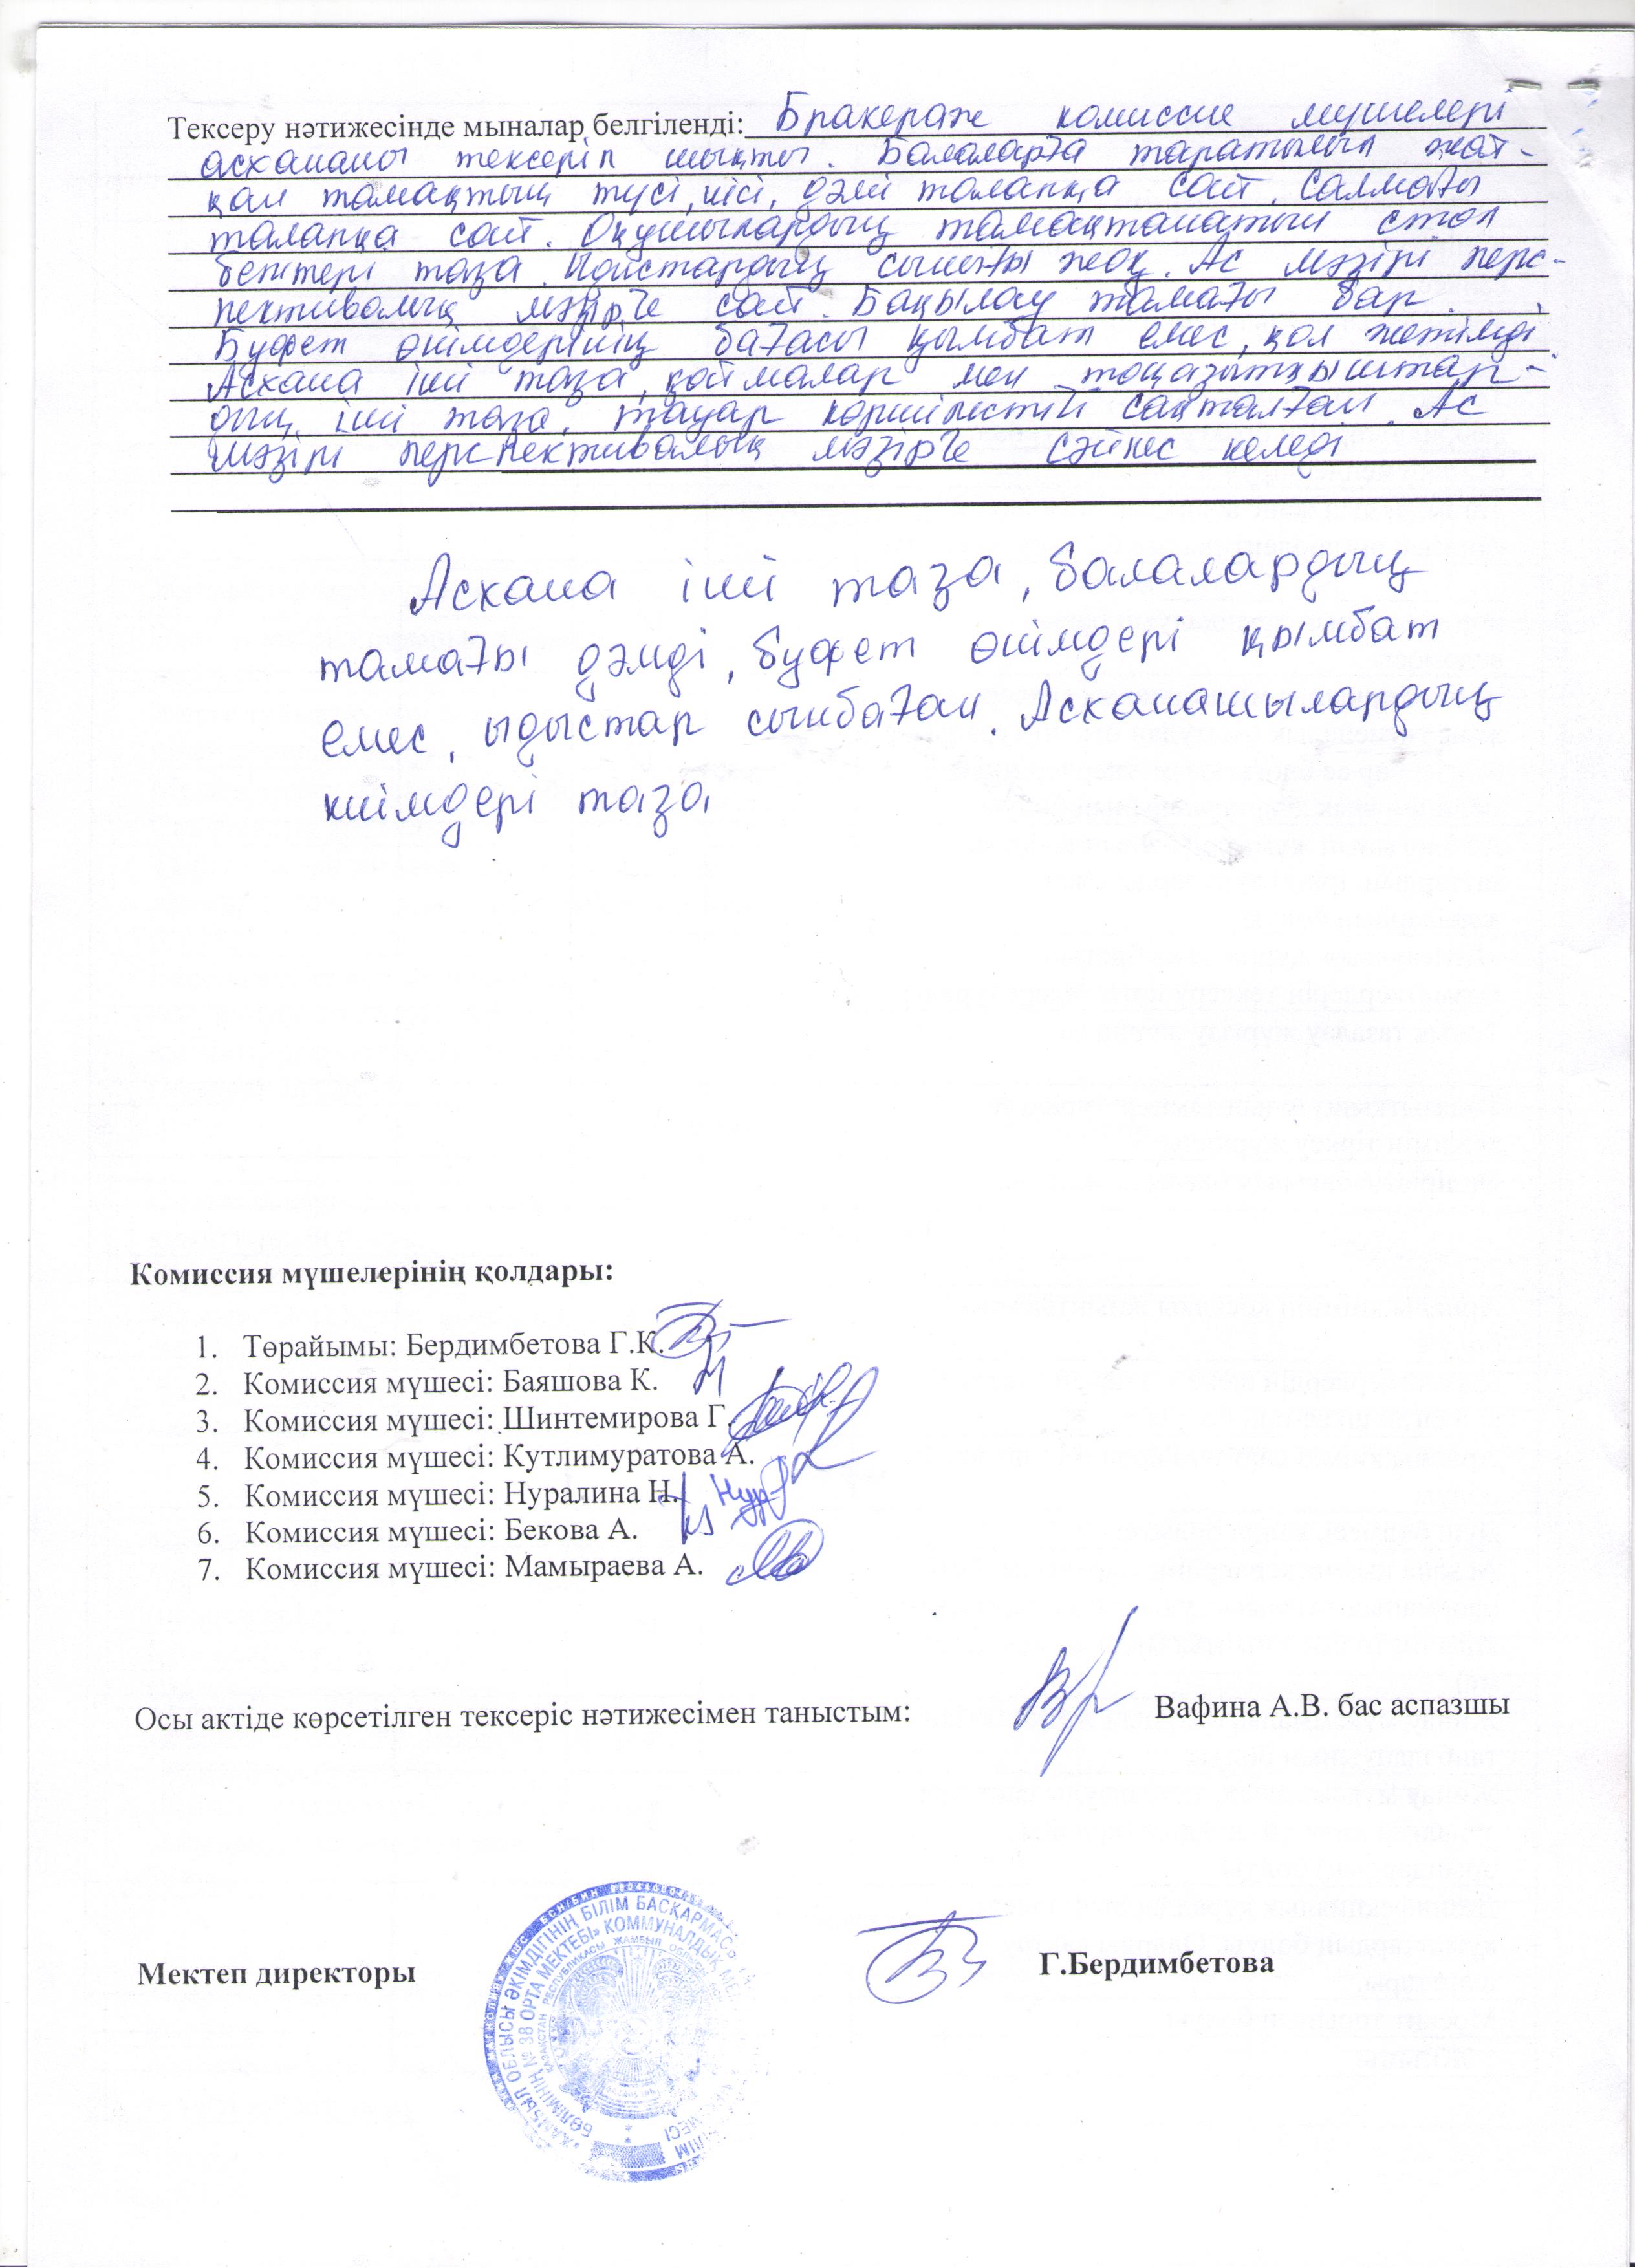 Тексеру нәтижесінде мыналар белгіленді: Бракераж комиссие мүшелері
асхананы тексеріп шықты. Балаларға таратылып жат-
қан тамақтың түсі, иісі, дәмі талапқа сай, салмағы
талапқа сай. Оқушылардың тамақтанатын стол
беттері таза. Ыдыстардың сынығы жоқ. Ас мәзірі перс-
пективалық мәзірге сай. Бақылау тамағы бар.
Буфет өнімдерінің бағасы қымбат емес, қол жетімді
Асхана іші таза, қоймалар мен тоңазытқыштар-
дың іші таза, тауар көршілестігі сақталған. Ас
мәзірі перспективалық мәзірге сәйкес келеді
Асхана іші таза, балалардың
тамағы дәмді, буфет өнімдері қымбат
емес, ыдыстар сынбаған. Асханашылардың
киімдері таза
Комиссия мүшелерінің қолдары:
1. Төрайымы: Бердимбетова Г.К.
2. Комиссия мүшесі: Баяшова К.
3. Комиссия мүшесі: Шинтемирова Г.
4. Комиссия мүшесі: Кутлимуратова А.
5. Комиссия мүшесі: Нуралина Н.
6. Комиссия мүшесі: Бекова А.
7. Комиссия мүшесі: Мамыраева А.
Осы актіде көрсетілген тексеріс нәтижесімен таныстым: Вафина А.В. бас аспазшы
Мектеп директоры Г.Бердимбетова
ОБЛЫСЫ ӘКІМДІГІНІҢ БІЛІМ БАСҚАРМАСЫ
БӨЛІМІНІҢ № 38 ОРТА МЕКТЕБІ» КОММУНАЛДЫҚ
ҚАЗАҚСТАН РЕСПУБЛИКАСЫ ЖАМБЫЛ